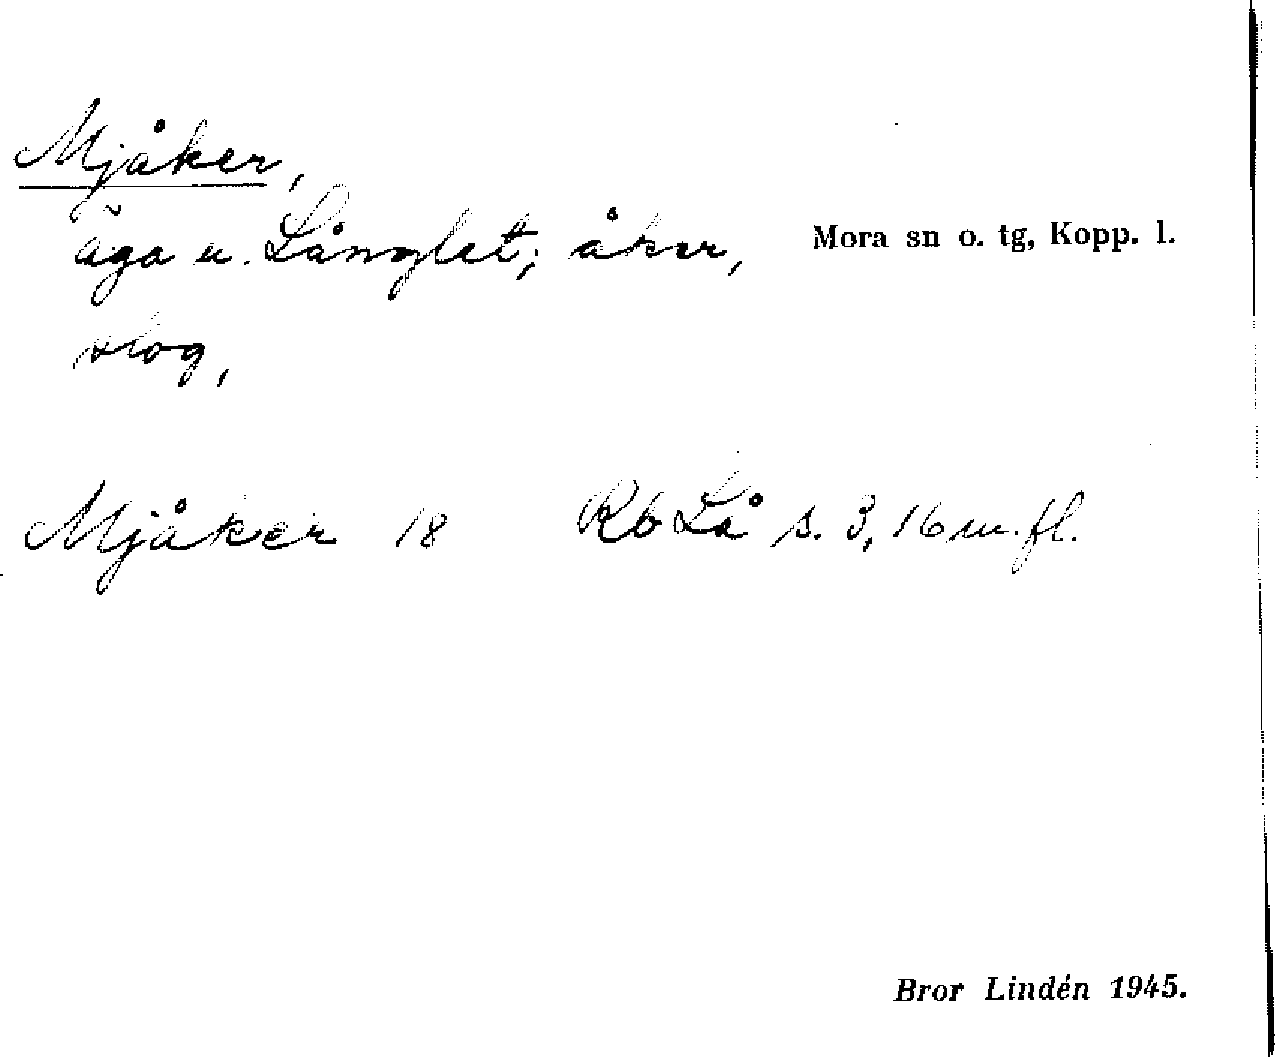 Mjåker,
äga u. Långlet; åker,
Mora sn o. tg, Kopp. l.
slog,
Mjåker 18 Rb Lå s. 3, 16 m. fl.
Bror Lindén 1945.